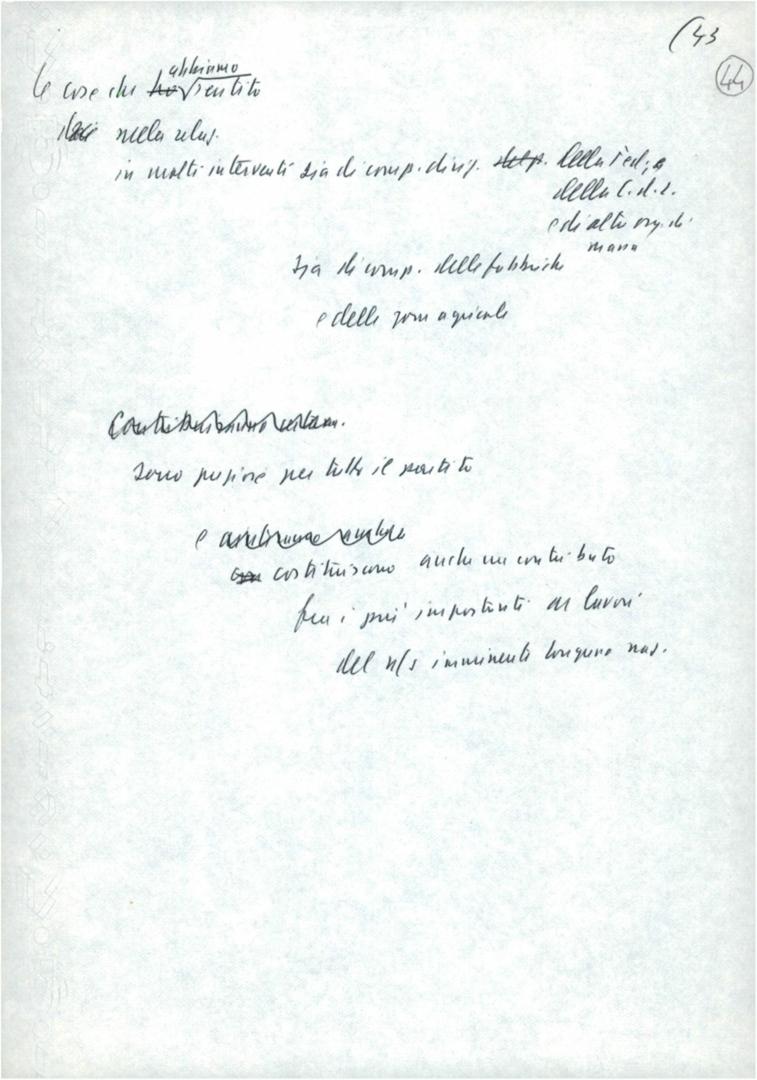 (43
44
abbiamo
le cose che ho sentito
nella relaz.
in molti interventi sia di comp. dirig. della Fed.ne
della C.d.L.
e di altre org. di
massa
sia di comp. delle fabbriche
e delle zone agricole
sono preziose per tutto il partito
e
costituiscono anche un contributo
fra i più importanti ai lavori
del n/s imminente congresso naz.